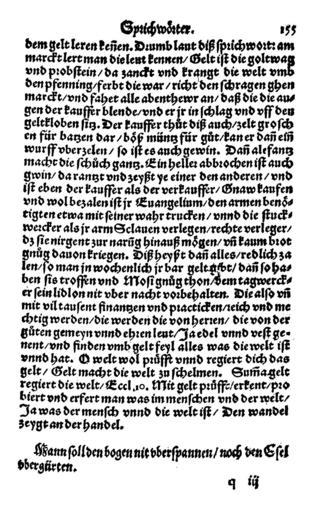 Sprichwörter. 155
dem gelt leren keñen. Drumb laut diß sprichwort: am
marckt lert man die leut kennen/ Gelt ist die goltwag
vnd probstein/ da zanckt vnd krangt die welt vmb
den pfenning/ ferbt die war/ richt den schragen ghen
marckt/ vnd fahet alle abenthewr an/ daß die die au-
gen der kauffer blende/ vnd er jr in schlag vnd vff den
geltkloben sitz. Der kauffer thüt diß auch/ zelt grosch
en für batzen dar/ böß müntz für güt/ kan er dañ ein
wurff vberzelen/ so ist es auch gewin. Dañ alefantz
macht die schůch gantz. Ein heller abbrochen ist auch
gwin/ da rantzt vnd zeyßt ye einer den anderen/ vnd
ist eben der kauffer als der verkauffer/ Gnaw kaufen
vnd wol bezalen ist jr Euangelium/ den armen benö-
tigten etwa mit seiner wahr trucken/ vnnd die stuck-
wercker als jr arm Sclauen verlegen/ rechte verleger/
dz sie nirgent zur narūg hinauß mögen/ vñ kaum brot
gnůg dauon kriegen. Diß heyßt dañ alles/ redlich za
len/ so man in wochenlich jr bar gelt gibt/ dañ so ha-
ben sis troffen vnd Mosi gnůg thon/ dem tagwerck-
er sein lidlon nit vber nacht vorbehalten. Die also vñ
mit vil tausent finanzen vnd practicken/ reich vnd me
chtig werden/ die werden die von herren/ die von der
gůten gemeyn vnnd ehren leut/ Ja edel vnnd vest ge-
nent/ vnd finden vmb gelt feyl alles was die welt ist
vnnd hat. O welt wol průfft vnnd regiert dich das
gelt/ Gelt macht die welt zu schelmen. Suma gelt
regiert die welt/ Eccl. 10. Mit gelt průfft/ erkent/ pro
biert vnd erfert man was im menschen vnd der welt/
Ja was der mensch vnnd die welt ist/ Den wandel
zeygt an der handel.
Mann soll den bogen nit vberspannen/ noch den Esel
vbergürten.
q iij